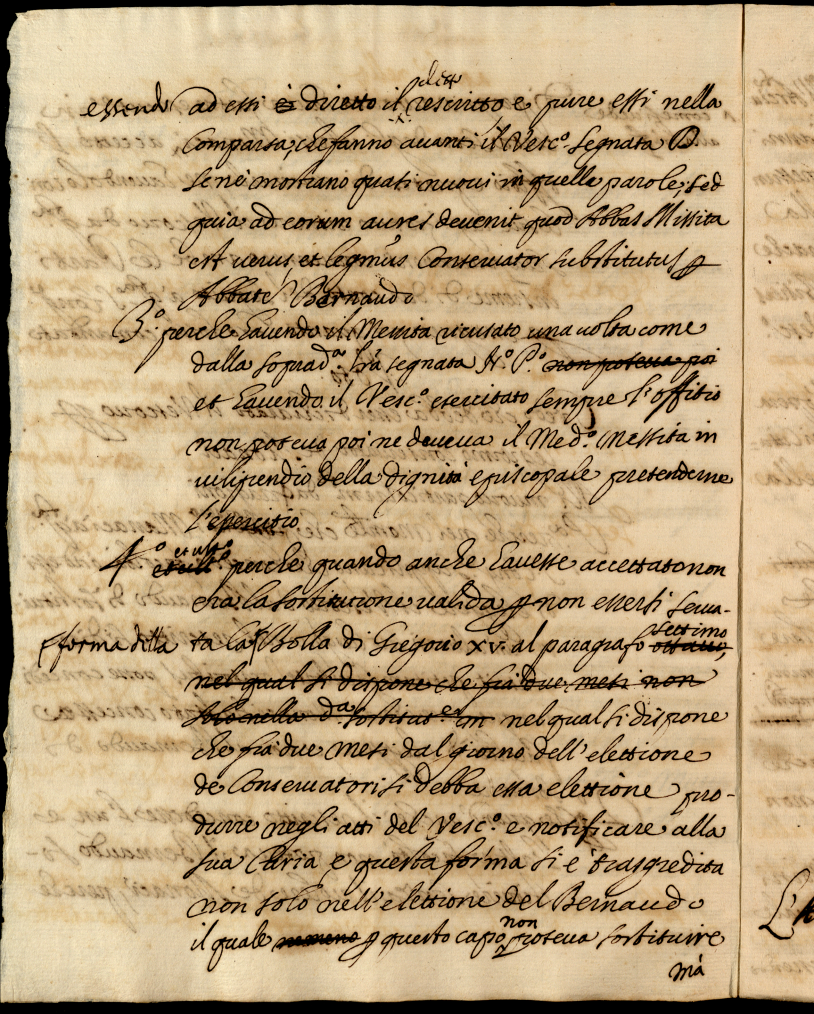 essend ad essi è diretto il dett rescritto e pure essi nella
Comparsa, che fanno auanti il Vesc.º segnata D.
se ne mostrano quasi nuoui in quelle parole, sed
quia ad eorum aures deuenit quod Abbas Missita
est uerus, et legmus Conseruator substitutus p
Abbate Bernaudo
3.º perche hauendo il Messita ricusato una uolta come
dalla soprad.ª fra segnata N.º P.º non poteua poi
et hauendo il Vesc.º esercitato sempre l'offitio
non poteua poi ne deueua il Med.º Messita in
uilipendio della dignità episcopale pretenderne
l'esercitio
4.º et ult.º perche quando anche hauesse accettato non
era la sostitutione ualida p non essersi serua-
p forma della ta la Bolla di Gregorio XV. al paragrafo settimo ottauo,
nel qual si dispone che frà due mesi non
solo nella d.ª sostitut.en in nel qual si dispone
che frà due mesi dal giorno dell'elettione
de Conseruatori si debba essa elettione pro-
durre negli atti del Vesc.º e notificare alla
sua Curia, e questa forma si è trasgredita
non solo nell'elettione del Bernaudo
il quale nemeno p questo capo non poteua sostituire
mà